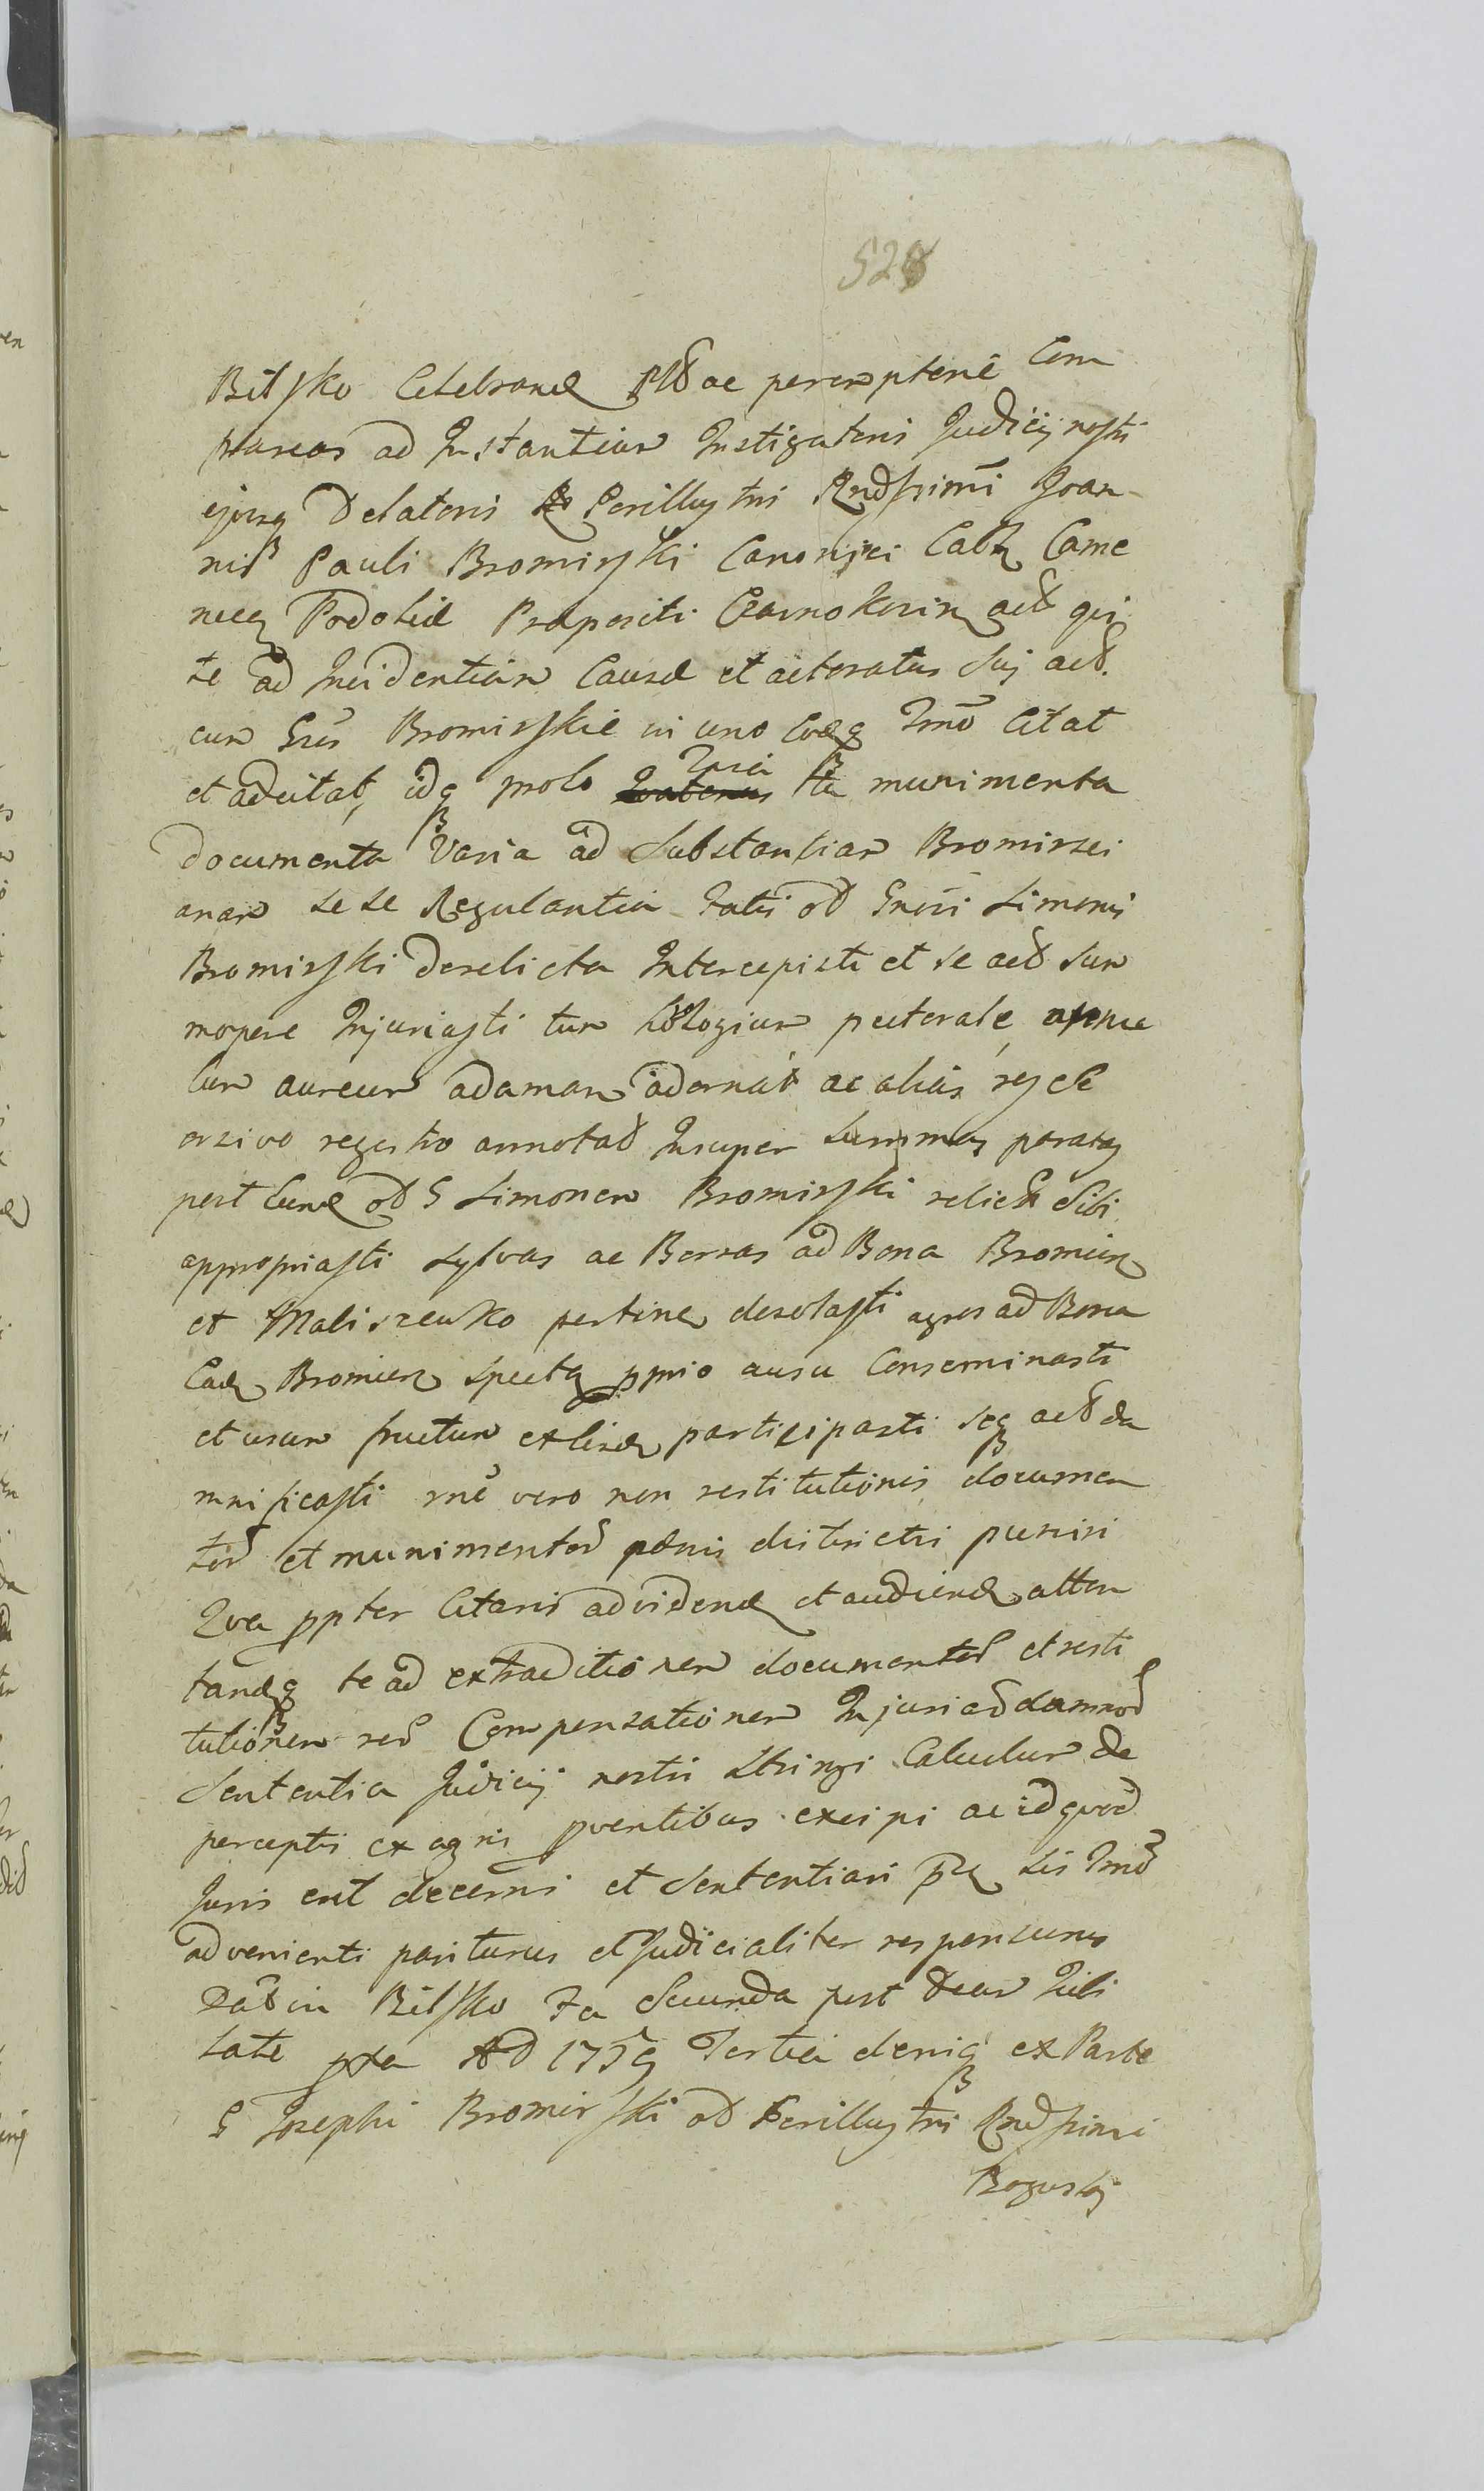 528
Bilsko Celebrand ac peremptorie Com
pareas ad Instantiam Instigatoris Judicij nostri
ejusq Delatoris Perillustris Rndssimi Joan
nis Pauli Bromirski Canonici Cath Came
necen Podoliæ Præpositi Czarnokozin act qui
te ad Incidentiam Causæ et actoratus sui act.
cum Gris Bromirskie in uno eodq Tmo Citat
et adcitat, idq prolo Quia tu munimenta
documenta varia ad Substantiam Bromirsci
anam sese Regulantia fatis od Gnosi Simonis
Bromirski derelicta Intercepisti et se act sum
mopere Injuriasti tum horologium pectorale, annu
lum aureum adaman adornat ac alias res
registro annotat Insuper Summas paratas
post eund od G Simonem Bromirski relict Sibi
appropriasti sylvas ac Borras ad Bona Bromierz
et Maliszewko pertinen desolasti agros ad Bona
Ead Bromierz specta ppio ausu Conseminasti
et usum fructum exlind participasti seq act da
mnificasti rne vero non restitutionis documen
tor et munimentor pænis districtis puniri
Qva ppter Citaris ad vidend et audiend atten
tandq te ad extraditionem documentor et resti
tutionem rer Compensationem Injuriar damnor
Sententia Judicij nostri stringi Calculum de
perceptis ex agris pventibus excipi ac id quod
Juris erit decerni et Sententiari Sis Tmo
advenienti pariturus et Judicialiter responsurus
Dat in Bilsko fa Secunda post Dcam Jubi
late pxa AD 1759 Tertia deniq ex Parte
G Josephi Bromirski od Perillustri Rndssimi
Bogusls